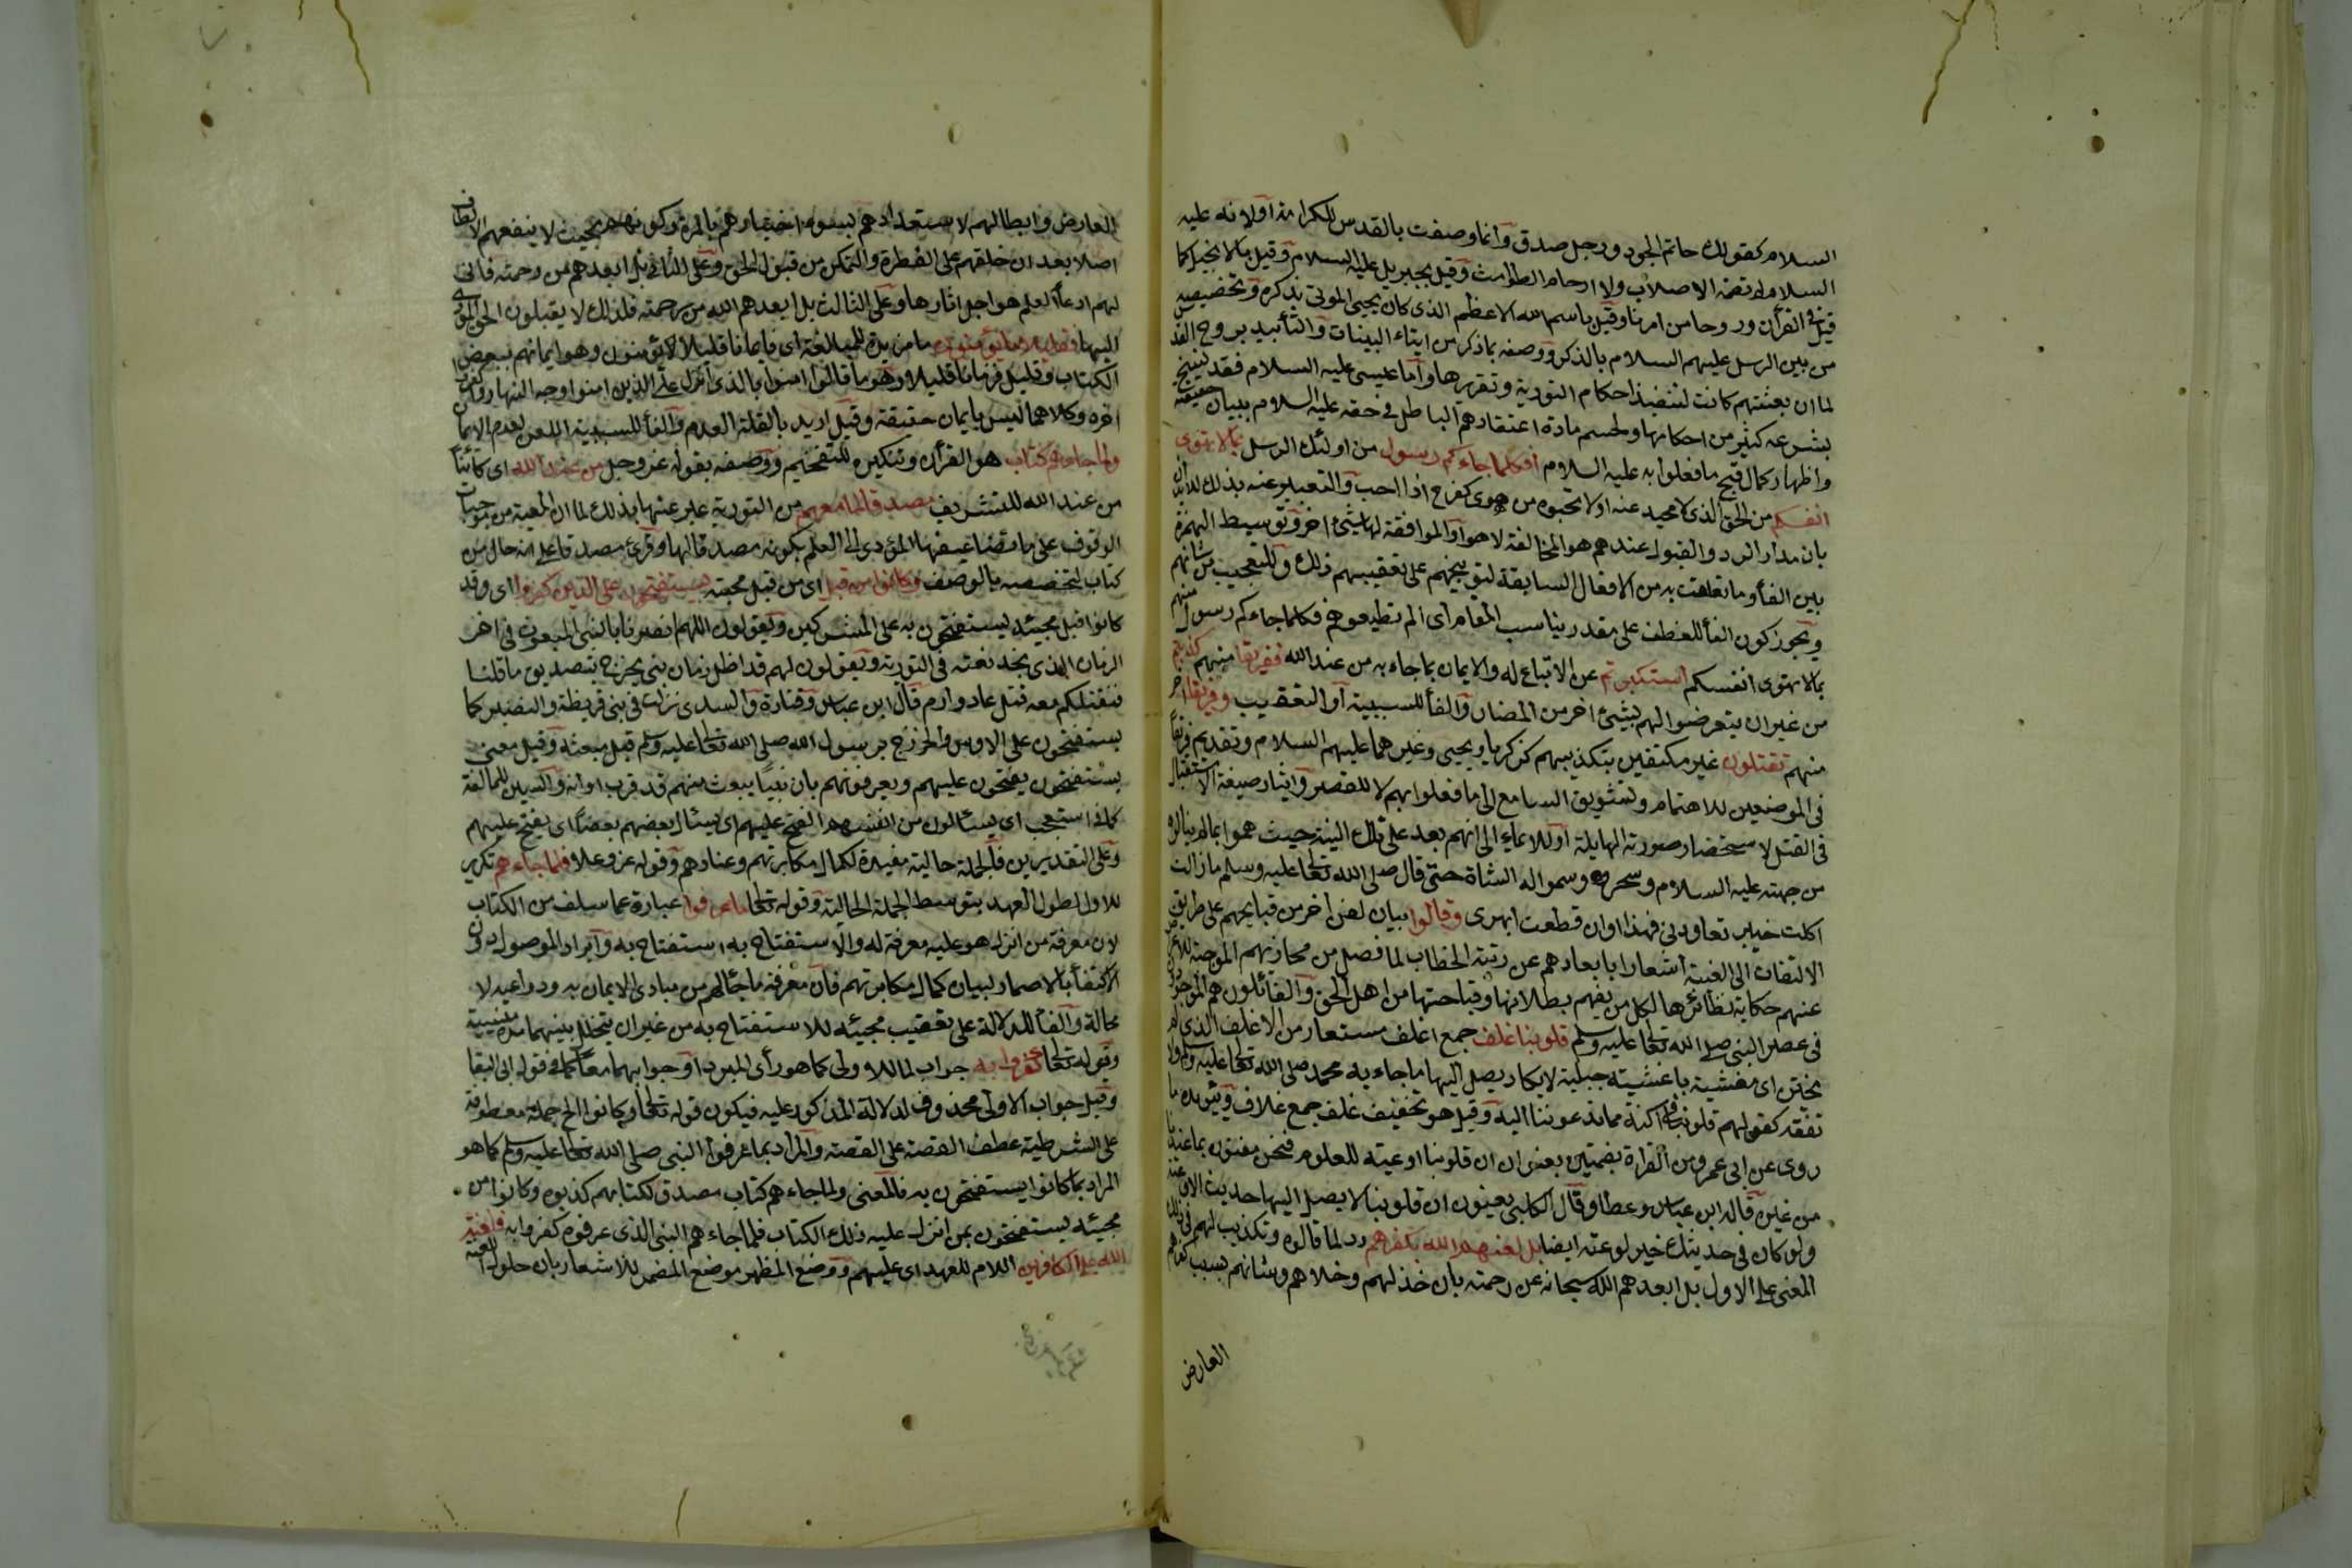 السلام كقولك حاتم الجود ورجل صدق وانما وصفت بالقدس للكرامة اولانه عليه
السلام لم تضمه الاصلاب ولا ارحام الطوامث وقيل بجبريل عليه السلام وقيل بالانجيل كما
قيل في القرأن وروحا من امرنا وقيل باسم الله الاعظم الذي كان يحيى الموتى بذكره وتخصيصه
من بين الرسل عليهم السلام بالذكر ووصفه بما ذكر من ايتاء البينات والتأييد بروح القدس
لما ان بعثتهم كانت لتنفيذ احكام التورية وتقريرها واما عيسى عليه السلام فقد نسخ
بشرعه كثير من احكامها ولحسم مادة اعتقادهم الباطل في حقه عليه السلام ببيان حقيقته
واظهار كمال قبح ما فعلوا به عليه السلام افكلما جاءكم رسول من اولئك الرسل بما لا تهوى
انفسكم من الحق الذي لا محيد عنه اولا تحبوه من هوى كفرح اذا احب والتعبير عنه بذلك للايذان
بان مدار الرد والقبول عندهم هو المخالفة لاهوا والموافقة لها لا شئ اخر وتوسيط الهمزة
بين الفأ وما تعلقت به من الافعال السابقة لتوبيخهم على تعقيبهم ذلك وللتعجيب من شانهم
ويجوز كون الفأ للعطف على مقدر يناسب المقام اى الم تطيعوهم فكلما جاءكم رسول منهم
بما لا تهوى انفسكم استكبرتم عن الاتباع له والايمان بما جاء به من عند الله ففريقا منهم كذبتم
من غير ان يتعرضوا لهم بشئ اخر من المضار والفأ للسببية او التعقيب وفريقا اخر
منهم تقتلون غير مكتفين بتكذيبهم كزكريا ويحيى وغيرهما عليهم السلام وتقديم فريقا
في الموضعين للاهتمام وتشويق السامع الى ما فعلوا بهم لا للقصر وايثار صيغة الاستقبال
في القتل لاستحضار صورته الهايلة او للايماء الى انهم بعد على تلك النية حيث هموا بما لم ينالوه
من جهته عليه السلام وسحروه وسموا له الشاة حتى قال صلى الله تعالى عليه وسلم ما زالت
اكلت خيبر تعاودني فهذا اوان قطعت ابهرى وقالوا بيان لفن اخر من قبايحهم على طريق
الالتفات الى الغيبة اشعارا بابعادهم عن رتبة الخطاب لما فصل من مخازيهم الموجبة للاعراض
عنهم حكاية نظائرها لكل من يفهم بطلانها وقباحتها من اهل الحق والقائلون هم الموجودون
في عصر النبي صلى الله تعالى عليه وسلم قلوبنا غلف جمع اغلف مستعار من الاغلف الذي لم
يختن اى مغشية باغشية جبلية لا يكاد يصل اليها ما جاء به محمد صلى الله تعالى عليه وسلم ولا
تفقه كقولهم قلوبنا في اكنة مما تدعوننا اليه وقيل هو تخفيف غلف جمع غلاف ويؤيده ما
روى عن ابي عمرو من القراة بضمتين يعنون ان قلوبنا اوعية للعلوم فنحن مفتون بما عندنا
من غيره قاله ابن عباس وعطا وقال الكلبي يعنون ان قلوبنا لا يصل اليها حديث الا وعته
ولو كان في حديثك خير لوعته ايضا بل لعنهم الله بكفرهم رد لما قالوه وتكذيب لهم في ذلك
المعنى على الاول بل ابعدهم الله سبحانه عن رحمته بان خذلهم وخلاهم وشانهم بسبب كفرهم
العارض
العارض وابطالهم لاستعدادهم لسوء اختيارهم بالمرة وكونهم بحيث لا ينفعهم الالطاف
اصلا بعد ان خلقهم على الفطرة والتمكن من قبول الحق وعلى الثاني بل ابعدهم من رحمته فانى
لهم ادعا العلم هو اجل اثارها وعلى الثالث بل ابعدهم الله من رحمته فلذلك لا يقبلون الحق المؤدى
اليها فقليلا ما يؤمنون ما مزيدة للمبالغة اى فايمانا قليلا يؤمنون وهو ايمانهم ببعض
الكتاب وقليل فزمانا قليلا وهو ما قالوا امنوا بالذي انزل على الذين امنوا وجه النهار واكفروا
اخره وكلاهما ليس بايمان حقيقة وقيل اريد بالقلة العدم والفأ للسببية اللعن لعدم الايمان
ولما جاءهم كتاب هو القرأن وتنكيره للتفخيم ووصفه بقوله عز وجل من عند الله اى كائنا
من عند الله للتشريف مصدق لما معهم من التورية عبر عنها بذلك لما ان المعية من موجبات
الوقوف على ما في تضاعيفها المؤدى الى العلم بكونه مصدقا لها وقرئ مصدقا على انه حال من
كتاب لتخصصه بالوصف وكانوا من قبل اى من قبل مجيئه يستفتحون على الذين كفروا اى وقد
كانوا قبل مجيئه يستفتحون به على المشركين ويقولون اللهم انصرنا بالنبي المبعوث في اخر
الزمان الذي نجد نعته في التورية ويقولون لهم قد اظل زمان نبي يخرج بتصديق ما قلنا
فنقتلكم معه قتل عاد وارم قال ابن عباس وقتادة والسدى نزلت في بني قريظة والنضير كما
يستفتحون على الاوس والخزرج برسول الله صلى الله تعالى عليه وسلم قبل مبعثه وقيل معنى
يستفتحون يفتحون عليهم ويعرفونهم بان نبيا يبعث منهم قد قرب اوانه والسين للمبالغة
كما في استعجب اى يسئالون من انفسهم الفتح عليهم اى يسئال بعضهم بعضا اى يفتح عليهم
وعلى التقديرين فالجملة حالية مفيدة لكمال مكابرتهم وعنادهم وقوله عز وعلا فلما جاءهم تكرير
للاول لطول العهد بتوسط الجملة الحالية وقوله تعالى ما عرفوا عبارة عما سلف من الكتاب
لان معرفة من انزل هو عليه معرفة له والاستفتاح به استفتاح به وايراد الموصول دون
الاكتفأ بالاضمار لبيان كمال مكابرتهم فان معرفة ما جاءهم من مبادى الايمان به ودواعيه لا
محالة والفأ للدلالة على تعقيب مجيئه للاستفتاح به من غير ان يتخلل بينهما مدة منسية
وقوله تعالى كفروا به جواب لما للاولى كما هو رأى المبرد او جوابهما معا كما في قول ابى البقا
وقيل جواب الاولى محذوف لدلالة المذكور عليه فيكون قوله تعالى وكانوا الخ جملة معطوفة
على الشرطية عطف القصة على القصة والمراد بما عرفوا النبي صلى الله تعالى عليه وسلم كما هو
المراد بما كانوا يستفتحون به فالمعنى ولما جاءهم كتاب مصدق لكتابهم كذبوه وكانوا من
مجيئه يستفتحون بمن انزل عليه ذلك الكتاب فلما جاءهم النبي الذي عرفوه كفروا به فلعنة
الله على الكافرين اللام للعهد اى عليهم ووضع المظهر موضع المضمر للاشعار بان حلول اللعنة